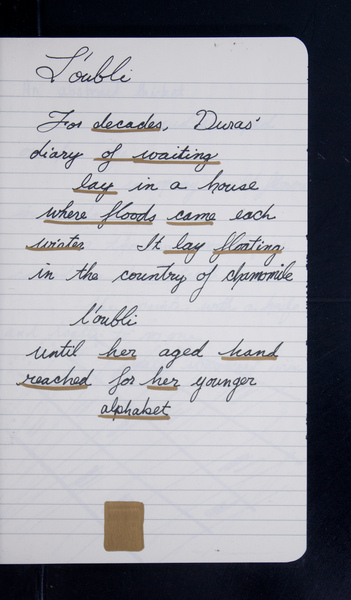 L'oubli
For decades, Duras'
diary of waiting
lay in a house
where floods came each
winter. It lay floating
in the country of chamomile
l'oubli
until her aged hand
reached for her younger
alphabet